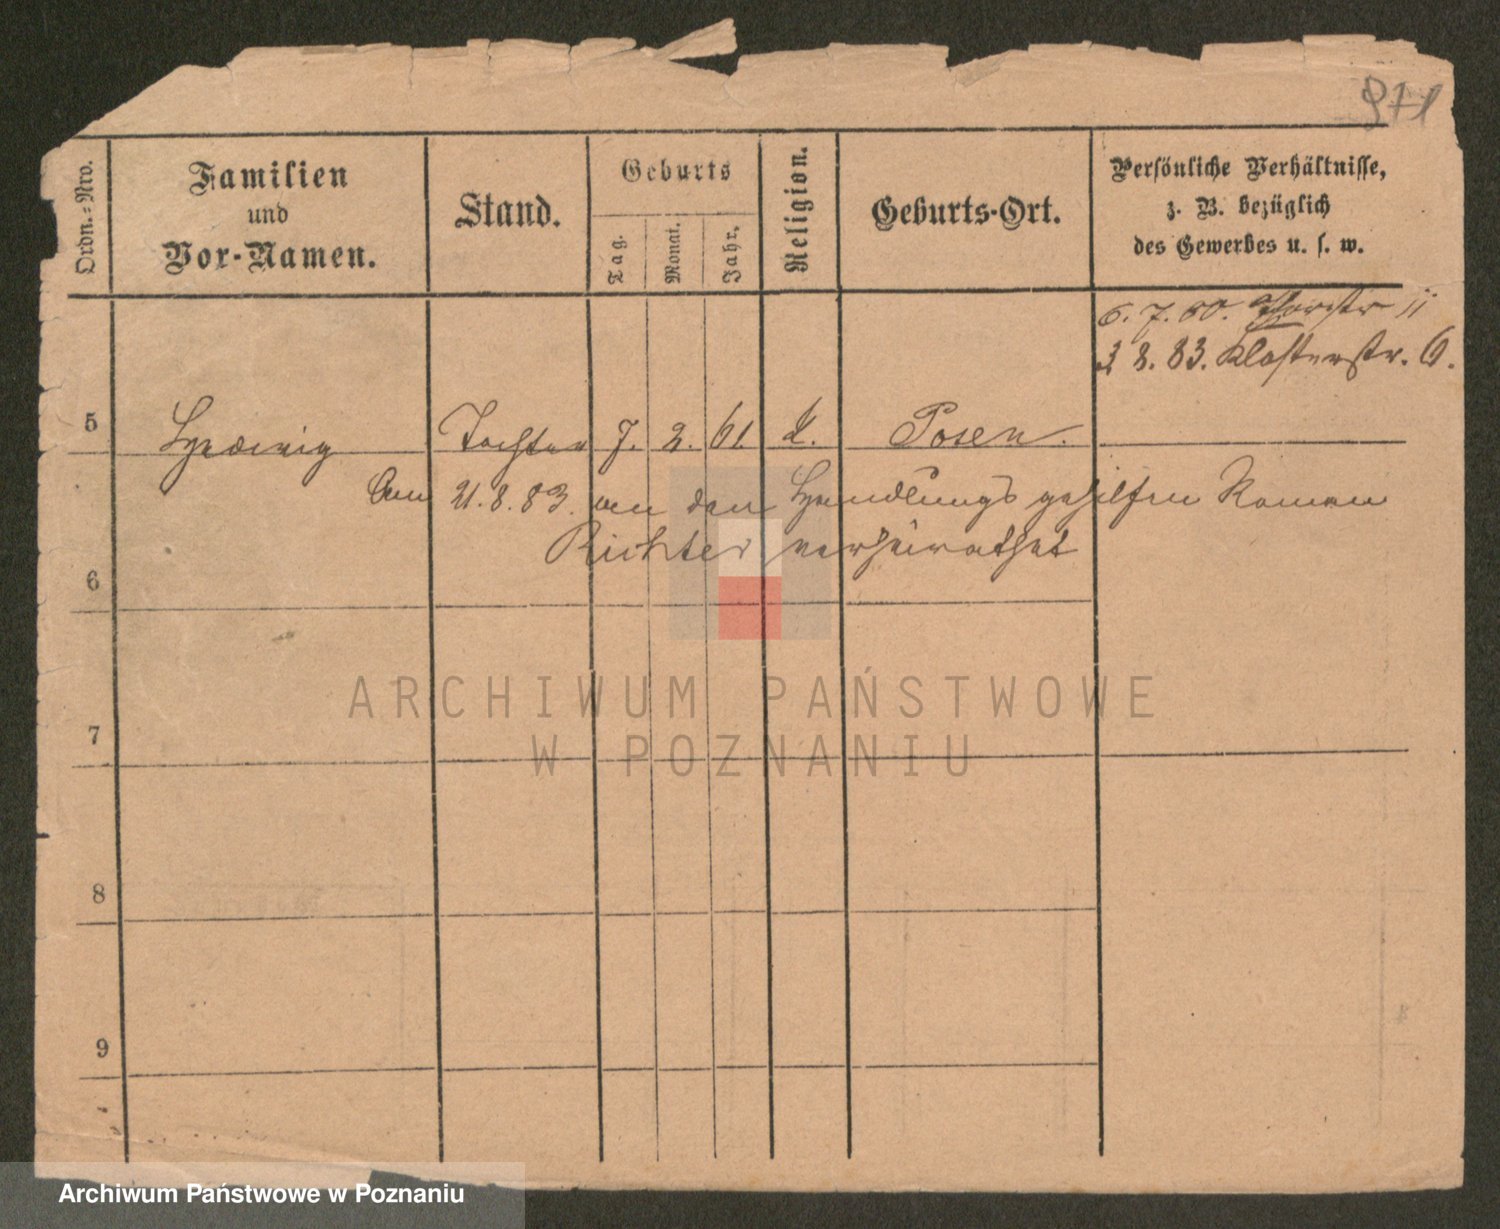 971
Ordn.-Nro.
Familien
und
Vor-Namen.
Stand.
Geburts
Tag.
Monat.
Jahr.
Religion.
Geburts-Ort.
Persönliche Verhältnisse,
z. B. bezüglich
des Gewerbes u. s. w.
6. 7. 80. 11
3 8. 83. Klosterstr. 6.
5 Hedwig Tochter 7. 2. 61 k. Posen.
Am 21. 8. 83. an den Handlungsgehilfen Roman
Richter verheirathet
6
7
8
9
ARCHIWUM PAŃSTWOWE
W POZNANIU
Archiwum Państwowe w Poznaniu